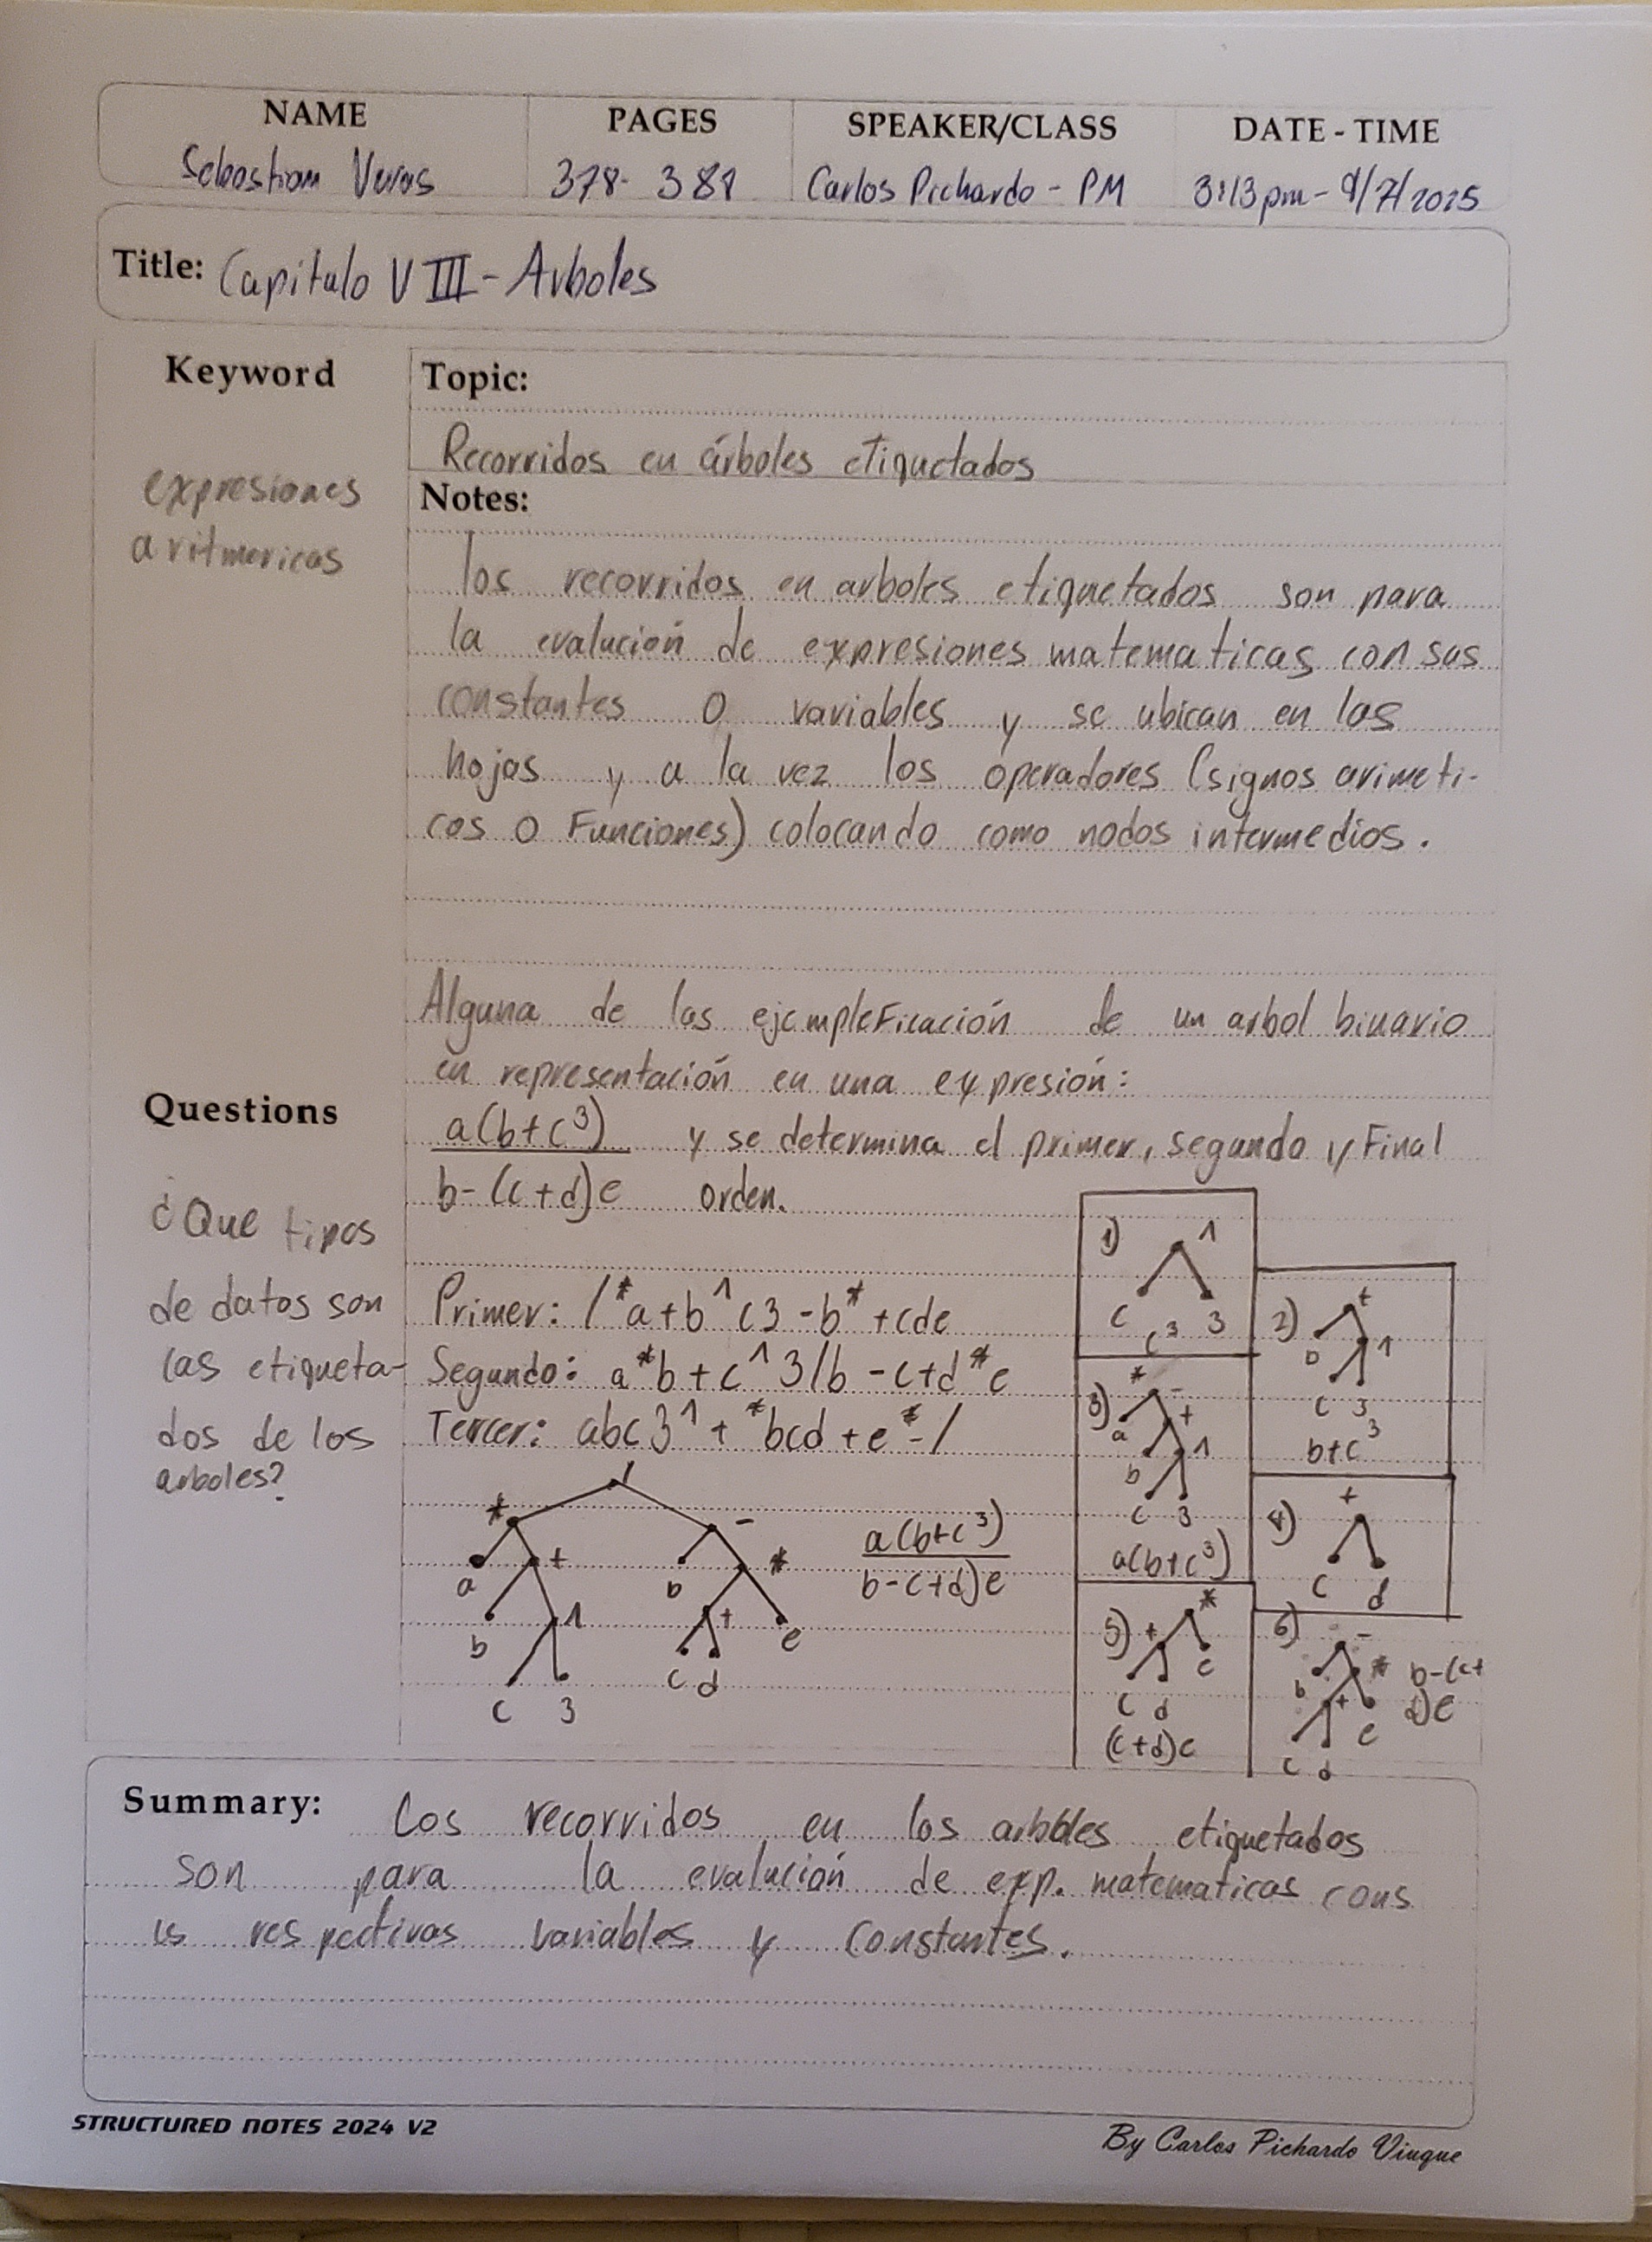 NAME PAGES SPEAKER/CLASS DATE - TIME
Sebastian Veras 378- 381 Carlos Pichardo - PM 3:13pm - 9/7/2025
Title: Capitulo VIII - Arboles
Keyword
expresiones
aritmericas
Topic:
Recorridos en árboles etiquetados
Notes:
los recorridos en arboles etiquetados son para
la evalución de expresiones matematicas con sus
constantes o variables y se ubican en las
hojas y a la vez los operadores (signos arimeti-
cos o Funciones) colocando como nodos intermedios.
Alguna de las ejempleFicación de un arbol binario
en representación en una expresión:
a(b+c³) y se determina el primer, segundo y Final
b-(c+d)e orden.
Primer: /*a+b^c3-b*+cde
Segundo: a*b+c^3/b-c+d*e
Tercer: abc3^+*bcd+e*-/
Questions
¿Que tipos
de datos son
las etiqueta-
dos de los
arboles?
/
* -
a + b *
b ^ + e
c 3 c d
a(b+c³)
b-(c+d)e
1) ^
c 3
c³
2) +
b ^
c 3
b+c³
3) * -
a +
b ^
c 3
a(b+c³)
4) +
c d
5) + *
c d e
(c+d)e
6) -
b * b-(c+
+ e d)e
c d
Summary: Los recorridos en los arboles etiquetados
son para la evalución de exp. matematicas cons
us respectivas variables y constantes.
STRUCTURED NOTES 2024 V2
By Carlos Pichardo Viuque